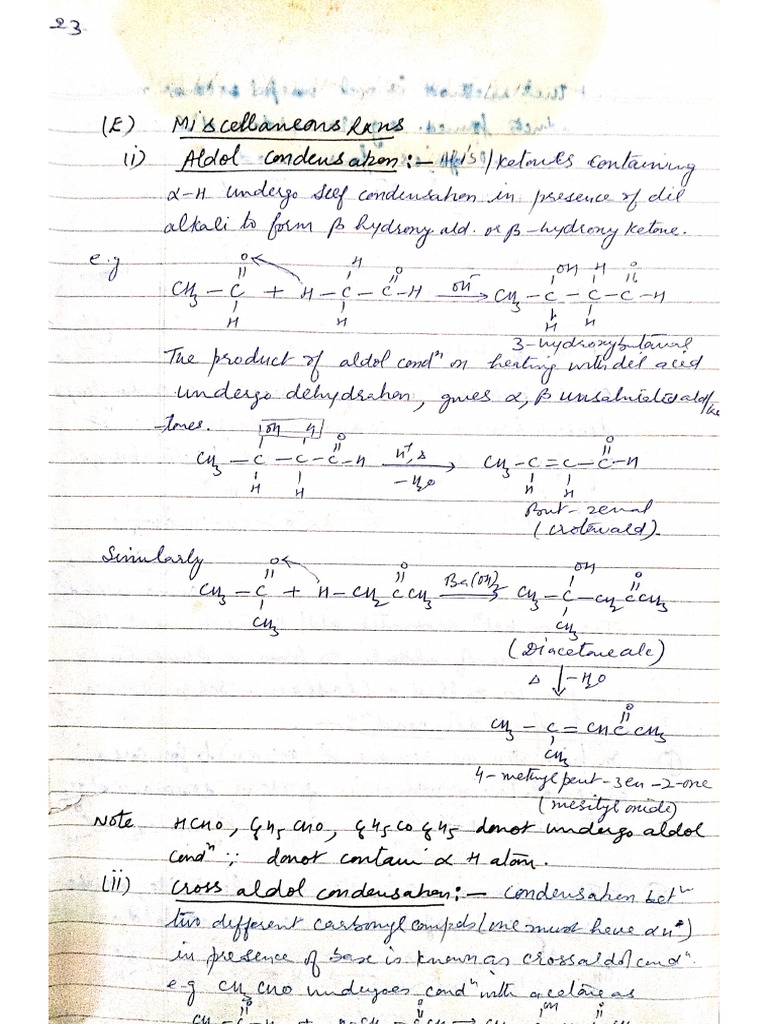 23
(E) Miscellaneous Rxns
(i) Aldol Condensation:- Al's/ketones containing
α-H undergo self condensation in presence of dil
alkali to form β hydroxy ald. or β-hydroxy ketone.
e.g
O H O OH H O
CH3 - C + H - C - C - H OH⁻ → CH3 - C - C - C - H
H H H H
3-hydroxybutanal
The product of aldol condⁿ on heating with dil acid
undergo dehydration, gives α, β unsaturated ald/ke
-tones. OH H O O
CH3 - C - C - C - H H⁺, Δ → CH3 - C = C - C - H
H H -H2O H H
But-2enal
(crotonald).
Similarly
O O OH O
CH3 - C + H - CH2 C CH3 Ba(OH)2 → CH3 - C - CH2 C CH3
CH3 CH3
(Diacetone alc)
Δ ↓ -H2O
O
CH3 - C = CH C CH3
CH3
4-methyl pent-3en-2-one
(mesityl oxide)
Note HCHO, C6H5 CHO, C6H5 CO C6H5 donot undergo aldol
condⁿ ∵ donot contain α H atom.
(ii) Cross aldol condensation:- Condensation betⁿ
two different carbonyl compds (one must have αH)
in presence of base is known as cross aldol condⁿ.
e.g CH3 CHO undergoes condⁿ with acetone as